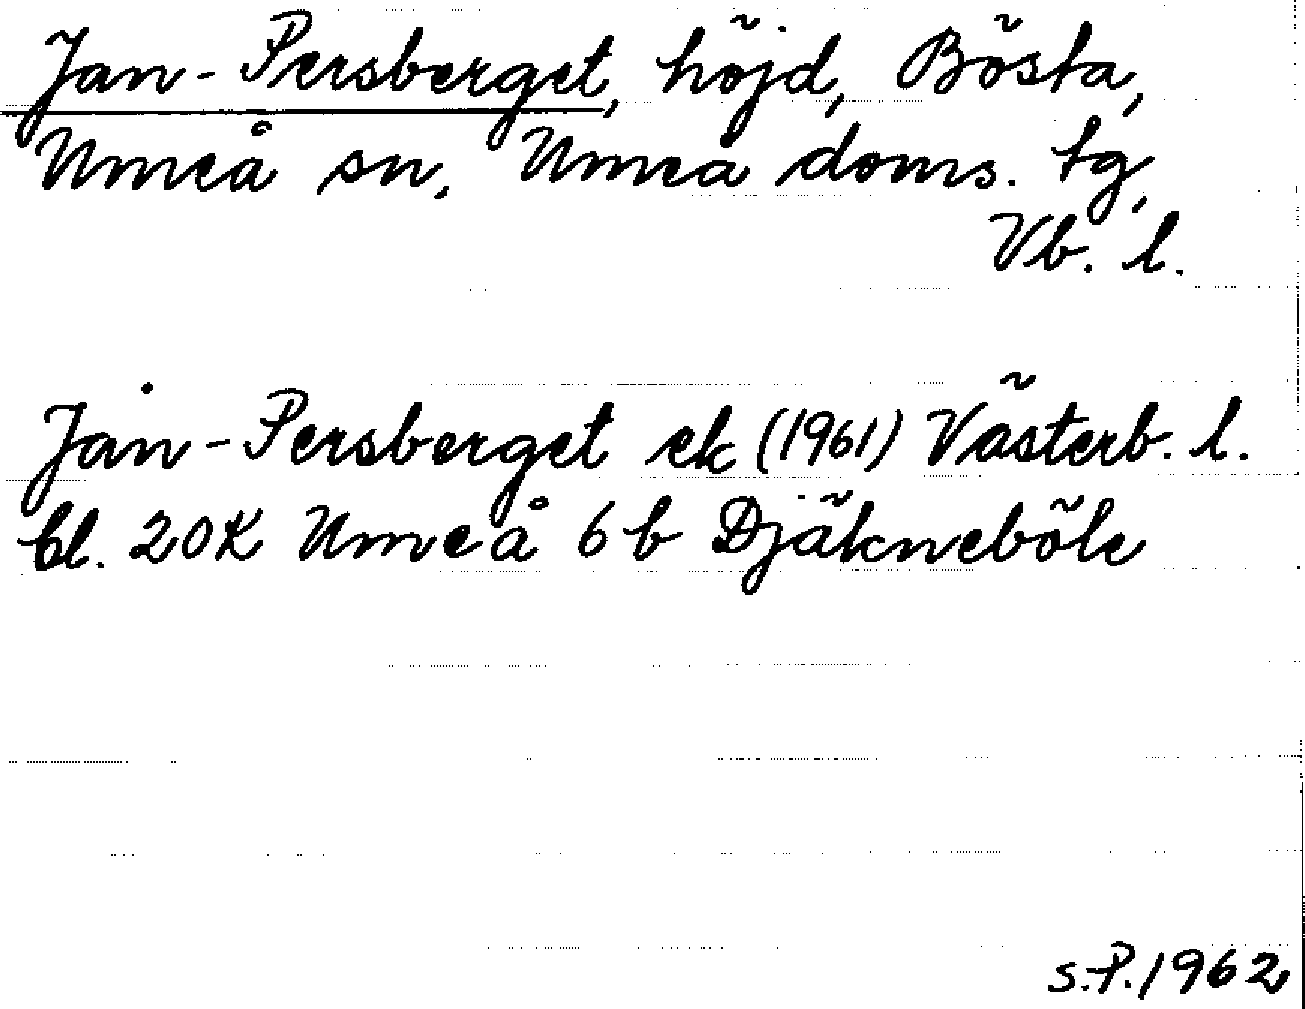 Jan-Persberget, höjd, Bösta,
Umeå sn, Umeå doms. tg,
Vb. l.
Jan-Persberget ek (1961) Västerb. l.
bl. 20K Umeå 6b Djäkneböle
S.P. 1962